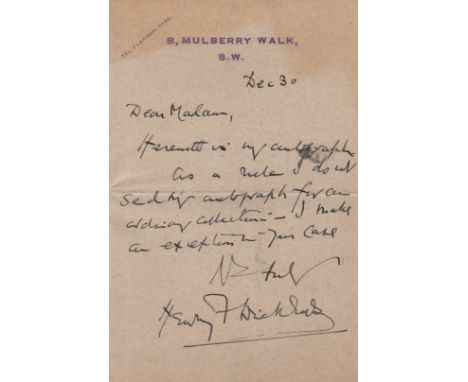 TEL. FLAXMAN
8, MULBERRY WALK,
S.W.
Dec 30
Dear Madam,
Herewith is my autograph.
As a rule I do not
send my autograph for an
ordinary collection – I make
an exception in your case
Henry F Dickens